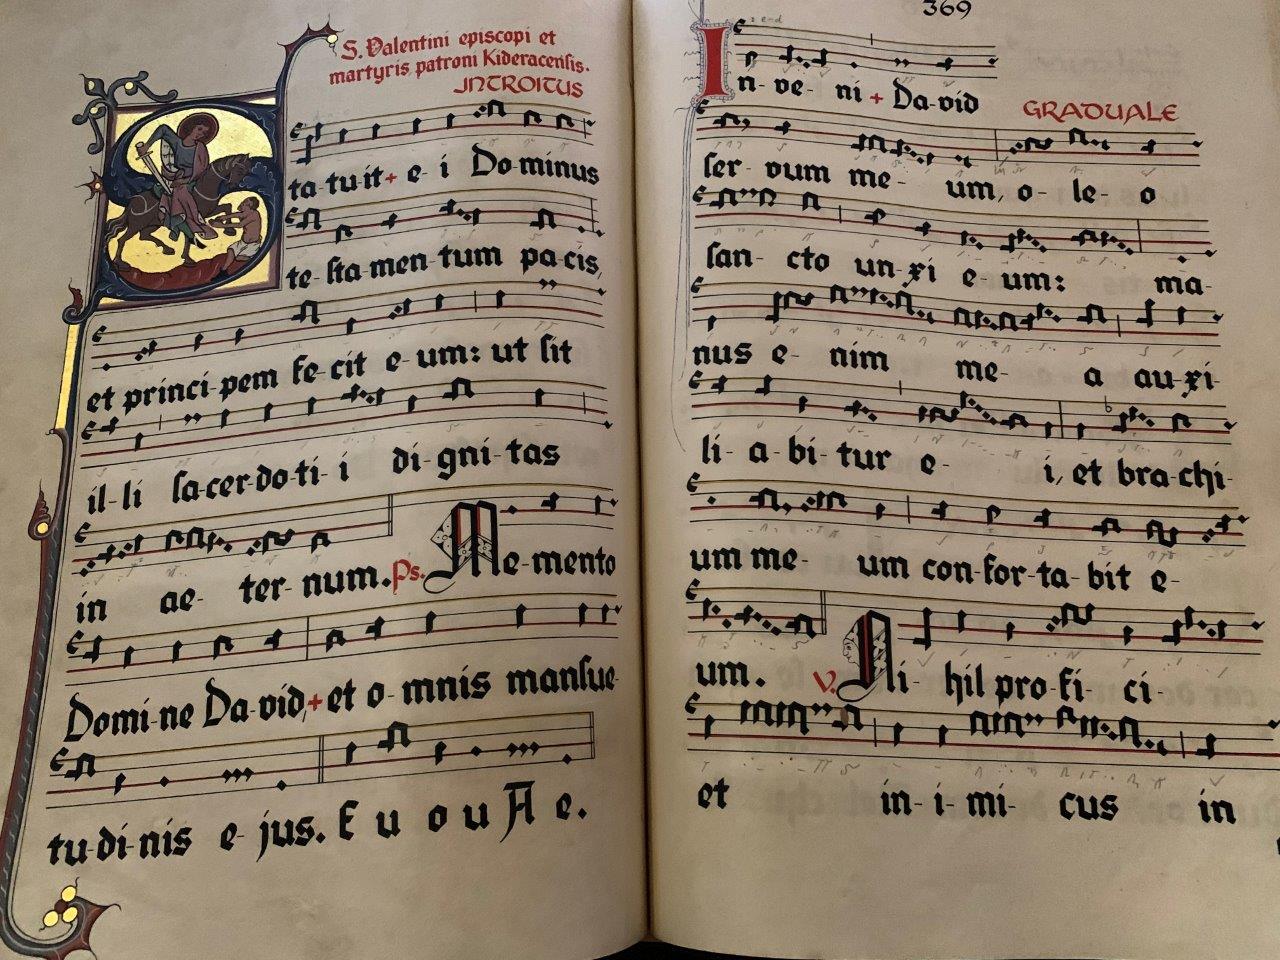 S. Valentini episcopi et
martyris patroni Kideracensis.
INTROITUS
Sta-tu-it + e-i Do-minus
te-sta-men-tum pa-cis,
et princi-pem fe-cit e-um: ut sit
il-li sa-cer-do-ti-i di-gni-tas
in ae-ter-num. Ps. Me-mento
Domi-ne Da-vid, + et o-mnis mansue-
tu-di-nis e-jus. E u o u A e.
369
In-ve-ni + Da-vid
GRADUALE
ser-vum me-um, o-le-o
san-cto un-xi e-um: ma-
nus e-nim me-a au-xi-
li-a-bi-tur e-i, et bra-chi-
um me-um con-for-ta-bit e-
um. V. Ni-hil pro-fi-ci-
et in-i-mi-cus in